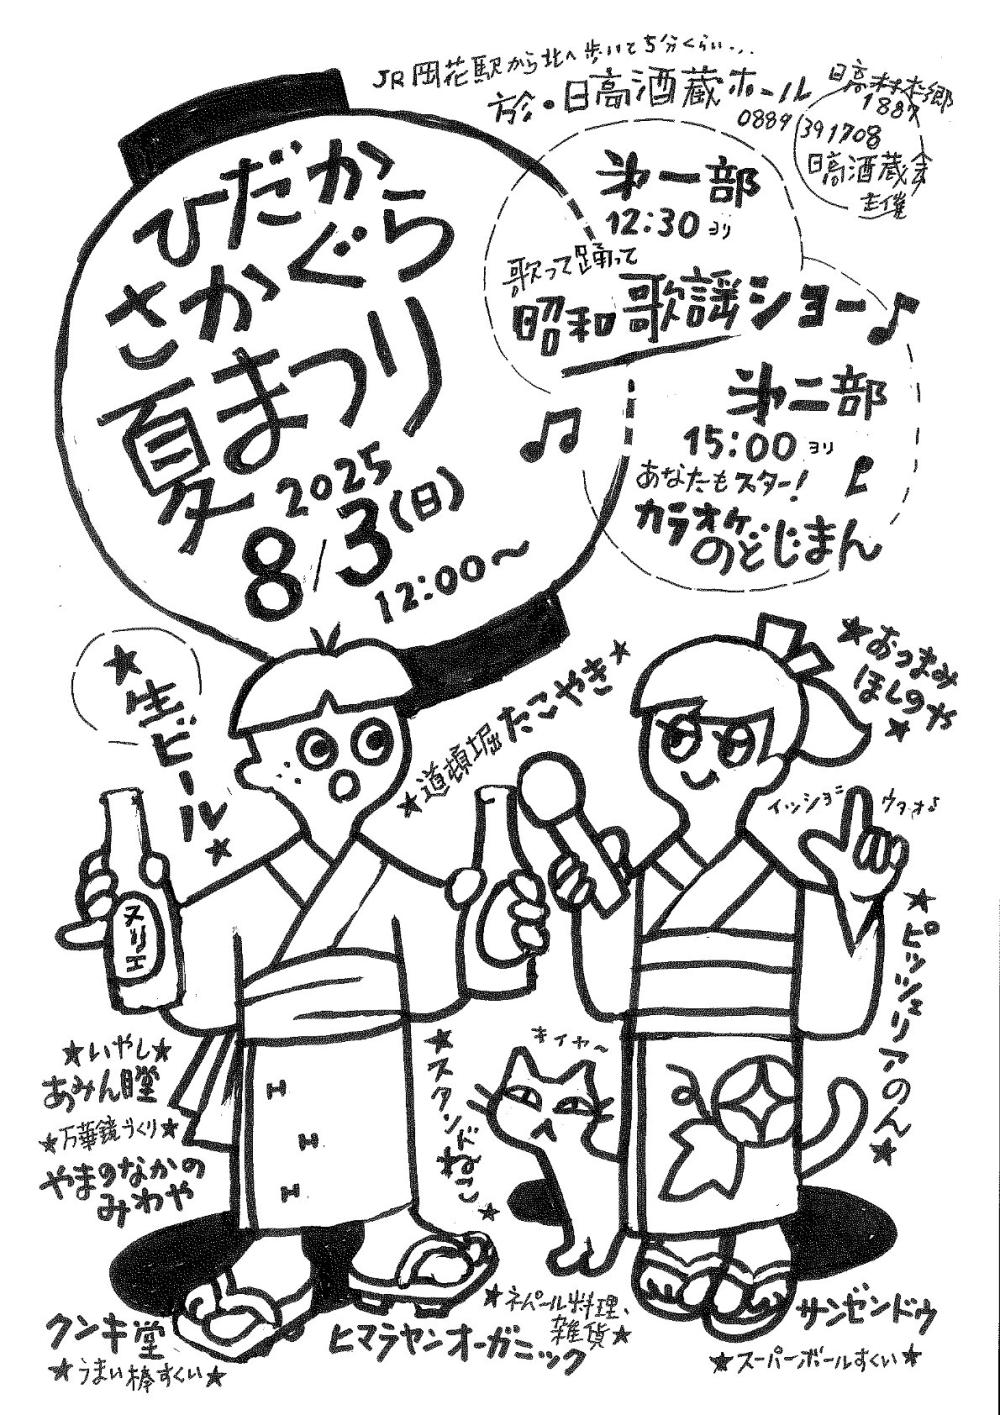 JR岡花駅から北へ歩いて5分くらい...
於・日高酒蔵ホール
日高村本郷
1887
0889
391708
日高酒蔵会
主催
ひだか
さかぐら
夏まつり
2025
8/3(日)
12:00〜
第一部
12:30ヨリ
歌って踊って
昭和歌謡ショー♪
第二部
15:00ヨリ
あなたもスター!
カラオケ
のどじまん
★生ビール★
★道頓堀たこやき★
★おつまみ
ほしのや★
イッショニ
ウタオ♪
ヌリエ
★ピッツェリアのん★
キイヤ〜
★スタンドねこ★
★いやし★
あみん堂
★万華鏡づくり★
やまのなかの
みわや
クンキ堂
★うまい棒すくい★
★ネパール料理、
雑貨★
ヒマラヤンオーガニック
サンゼンドウ
★スーパーボールすくい★